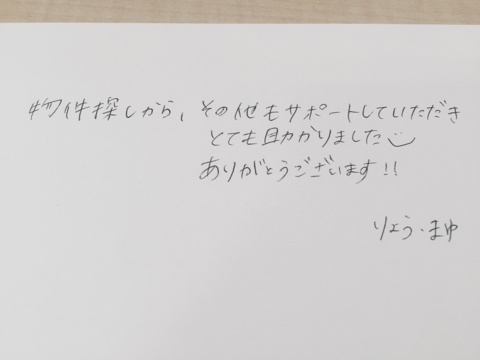 物件探しから、その他もサポートしていただき
とても助かりました
ありがとうございます!!
りょう・まゆ